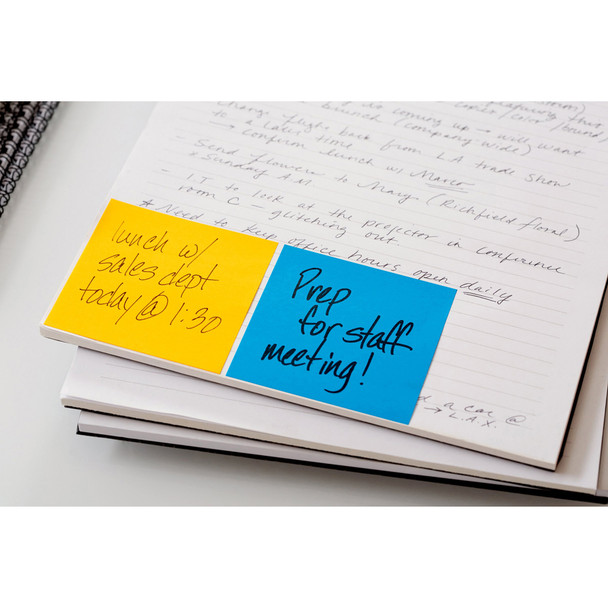 coming up → will want
change flight back from L.A trade show
to a later time
→ confirm lunch w/ Marco
- Send flowers to Mary (Richfield floral)
Sunday A.M.
- I.T to look at the projector in conference
room C - glitching out
* Need to keep office hours open daily
lunch w/
sales dept
today @ 1:30
Prep
for staff
meeting!
a car @
→ L.A.X.